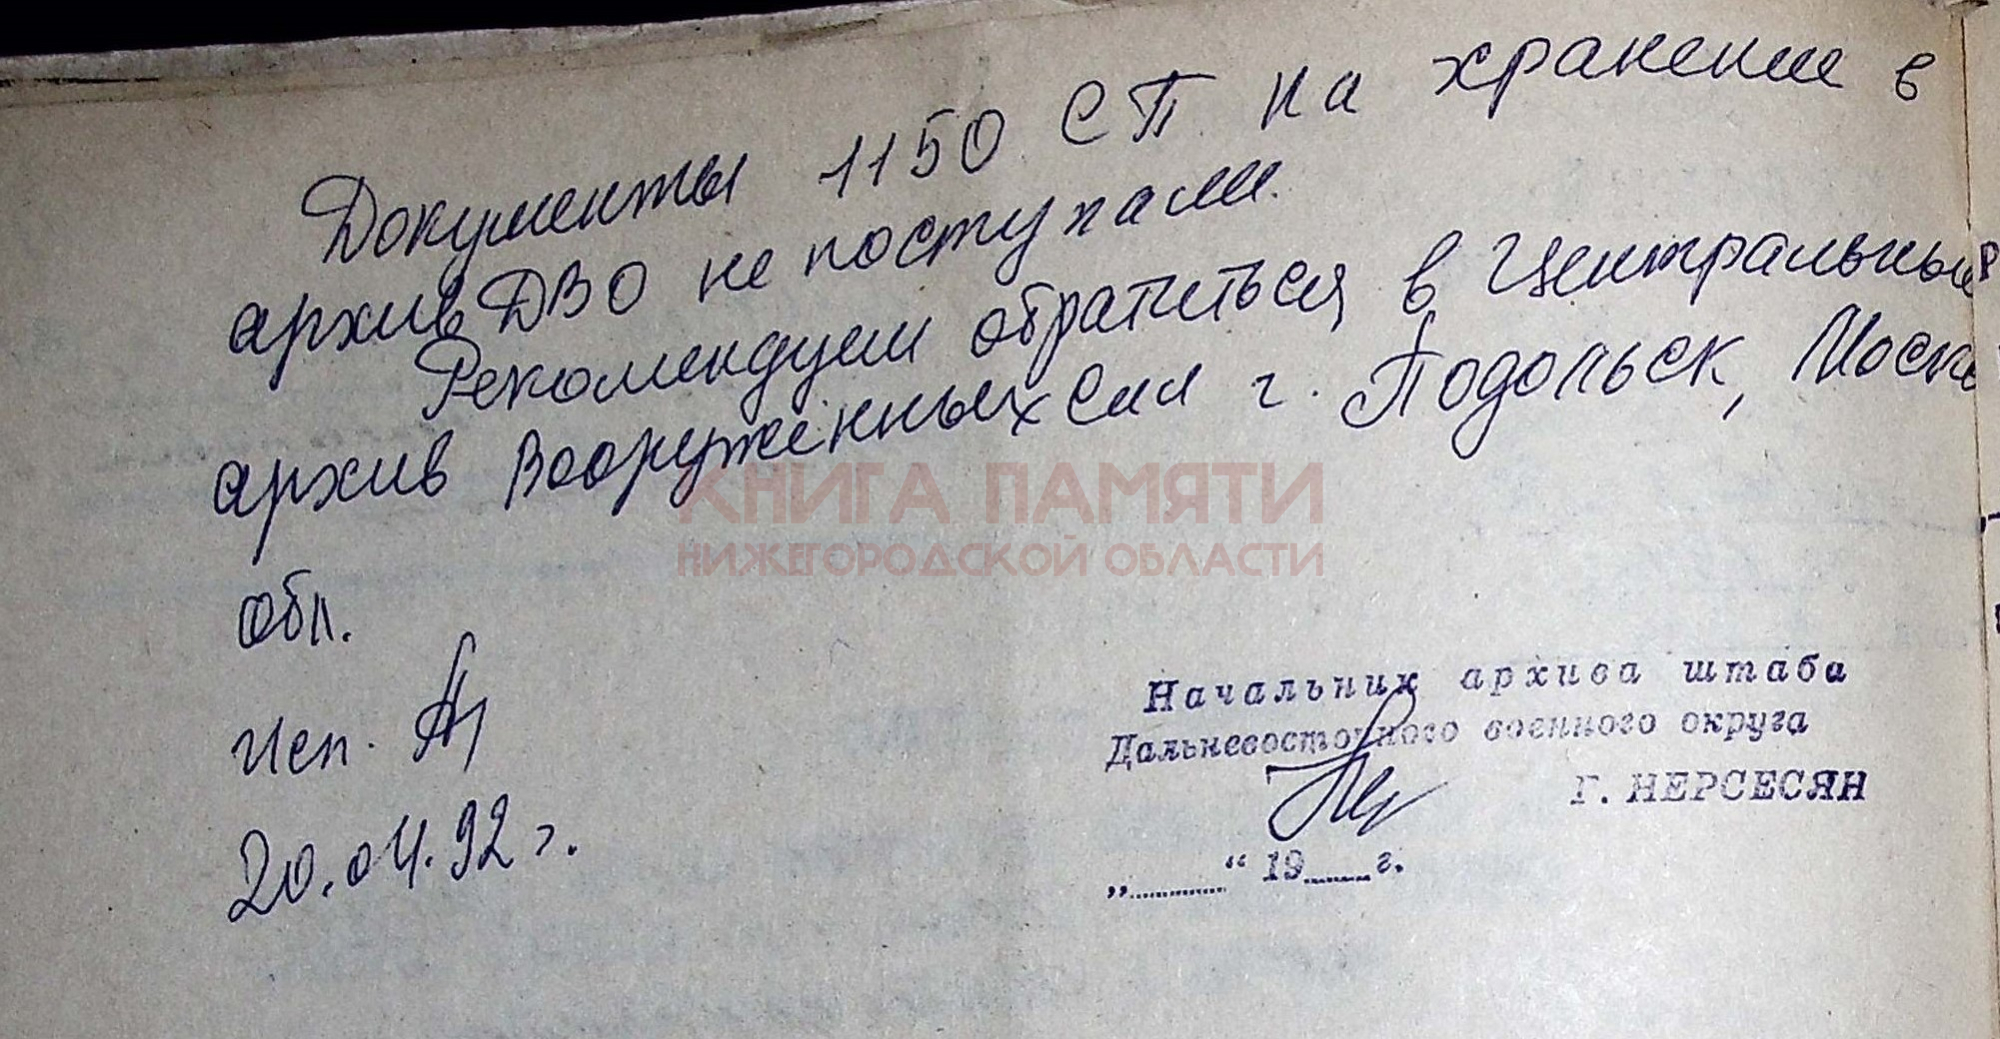 Документы 1150 СП на хранение в
архив ДВО не поступали.
Рекомендуем обратиться в Центральный
архив Вооружённых Сил г. Подольск, Моск
обл.
КНИГА ПАМЯТИ
НИЖЕГОРОДСКОЙ ОБЛАСТИ
Исп.
20.04.92 г.
Начальник архива штаба
Дальневосточного военного округа
Г. НЕРСЕСЯН
„ “ 19 г.